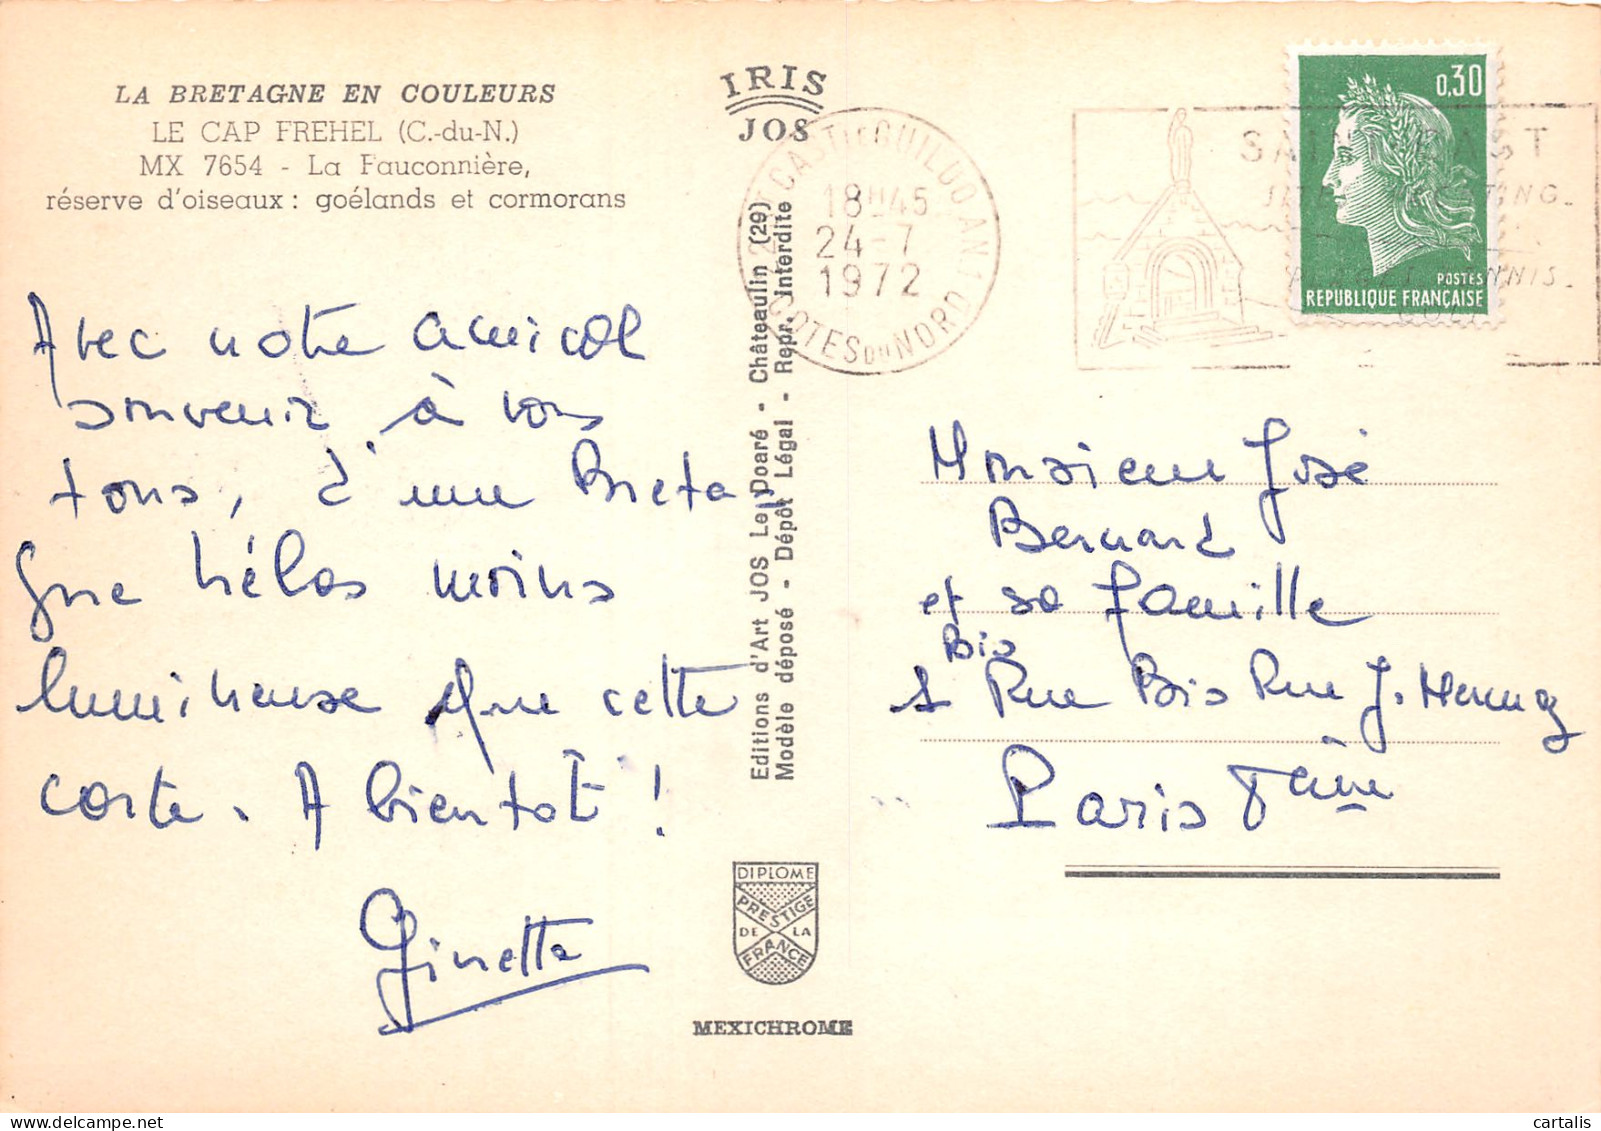 LA BRETAGNE EN COULEURS
LE CAP FREHEL (C.-du-N.)
MX 7654 - La Fauconnière,
réserve d'oiseaux : goélands et cormorans
Avec notre amical
souvenir à vous
tous, d'une Breta-
gne hélas moins
lumineuse que cette
carte. A bientôt !
Ginette
IRIS
JOS
Editions d'Art JOS Le Doaré - Châteaulin (29)
Modèle déposé - Dépôt Légal - Repr. Interdite
DIPLOME
PRESTIGE
DE LA
FRANCE
MEXICHROME
CAST LE GUILDO
18H45
24-7
1972
COTES DU NORD
0,30
POSTES
REPUBLIQUE FRANÇAISE
Monsieur José
Bernard
et sa famille
Bis
1 Rue Bis Rue J.
Paris
cartalis